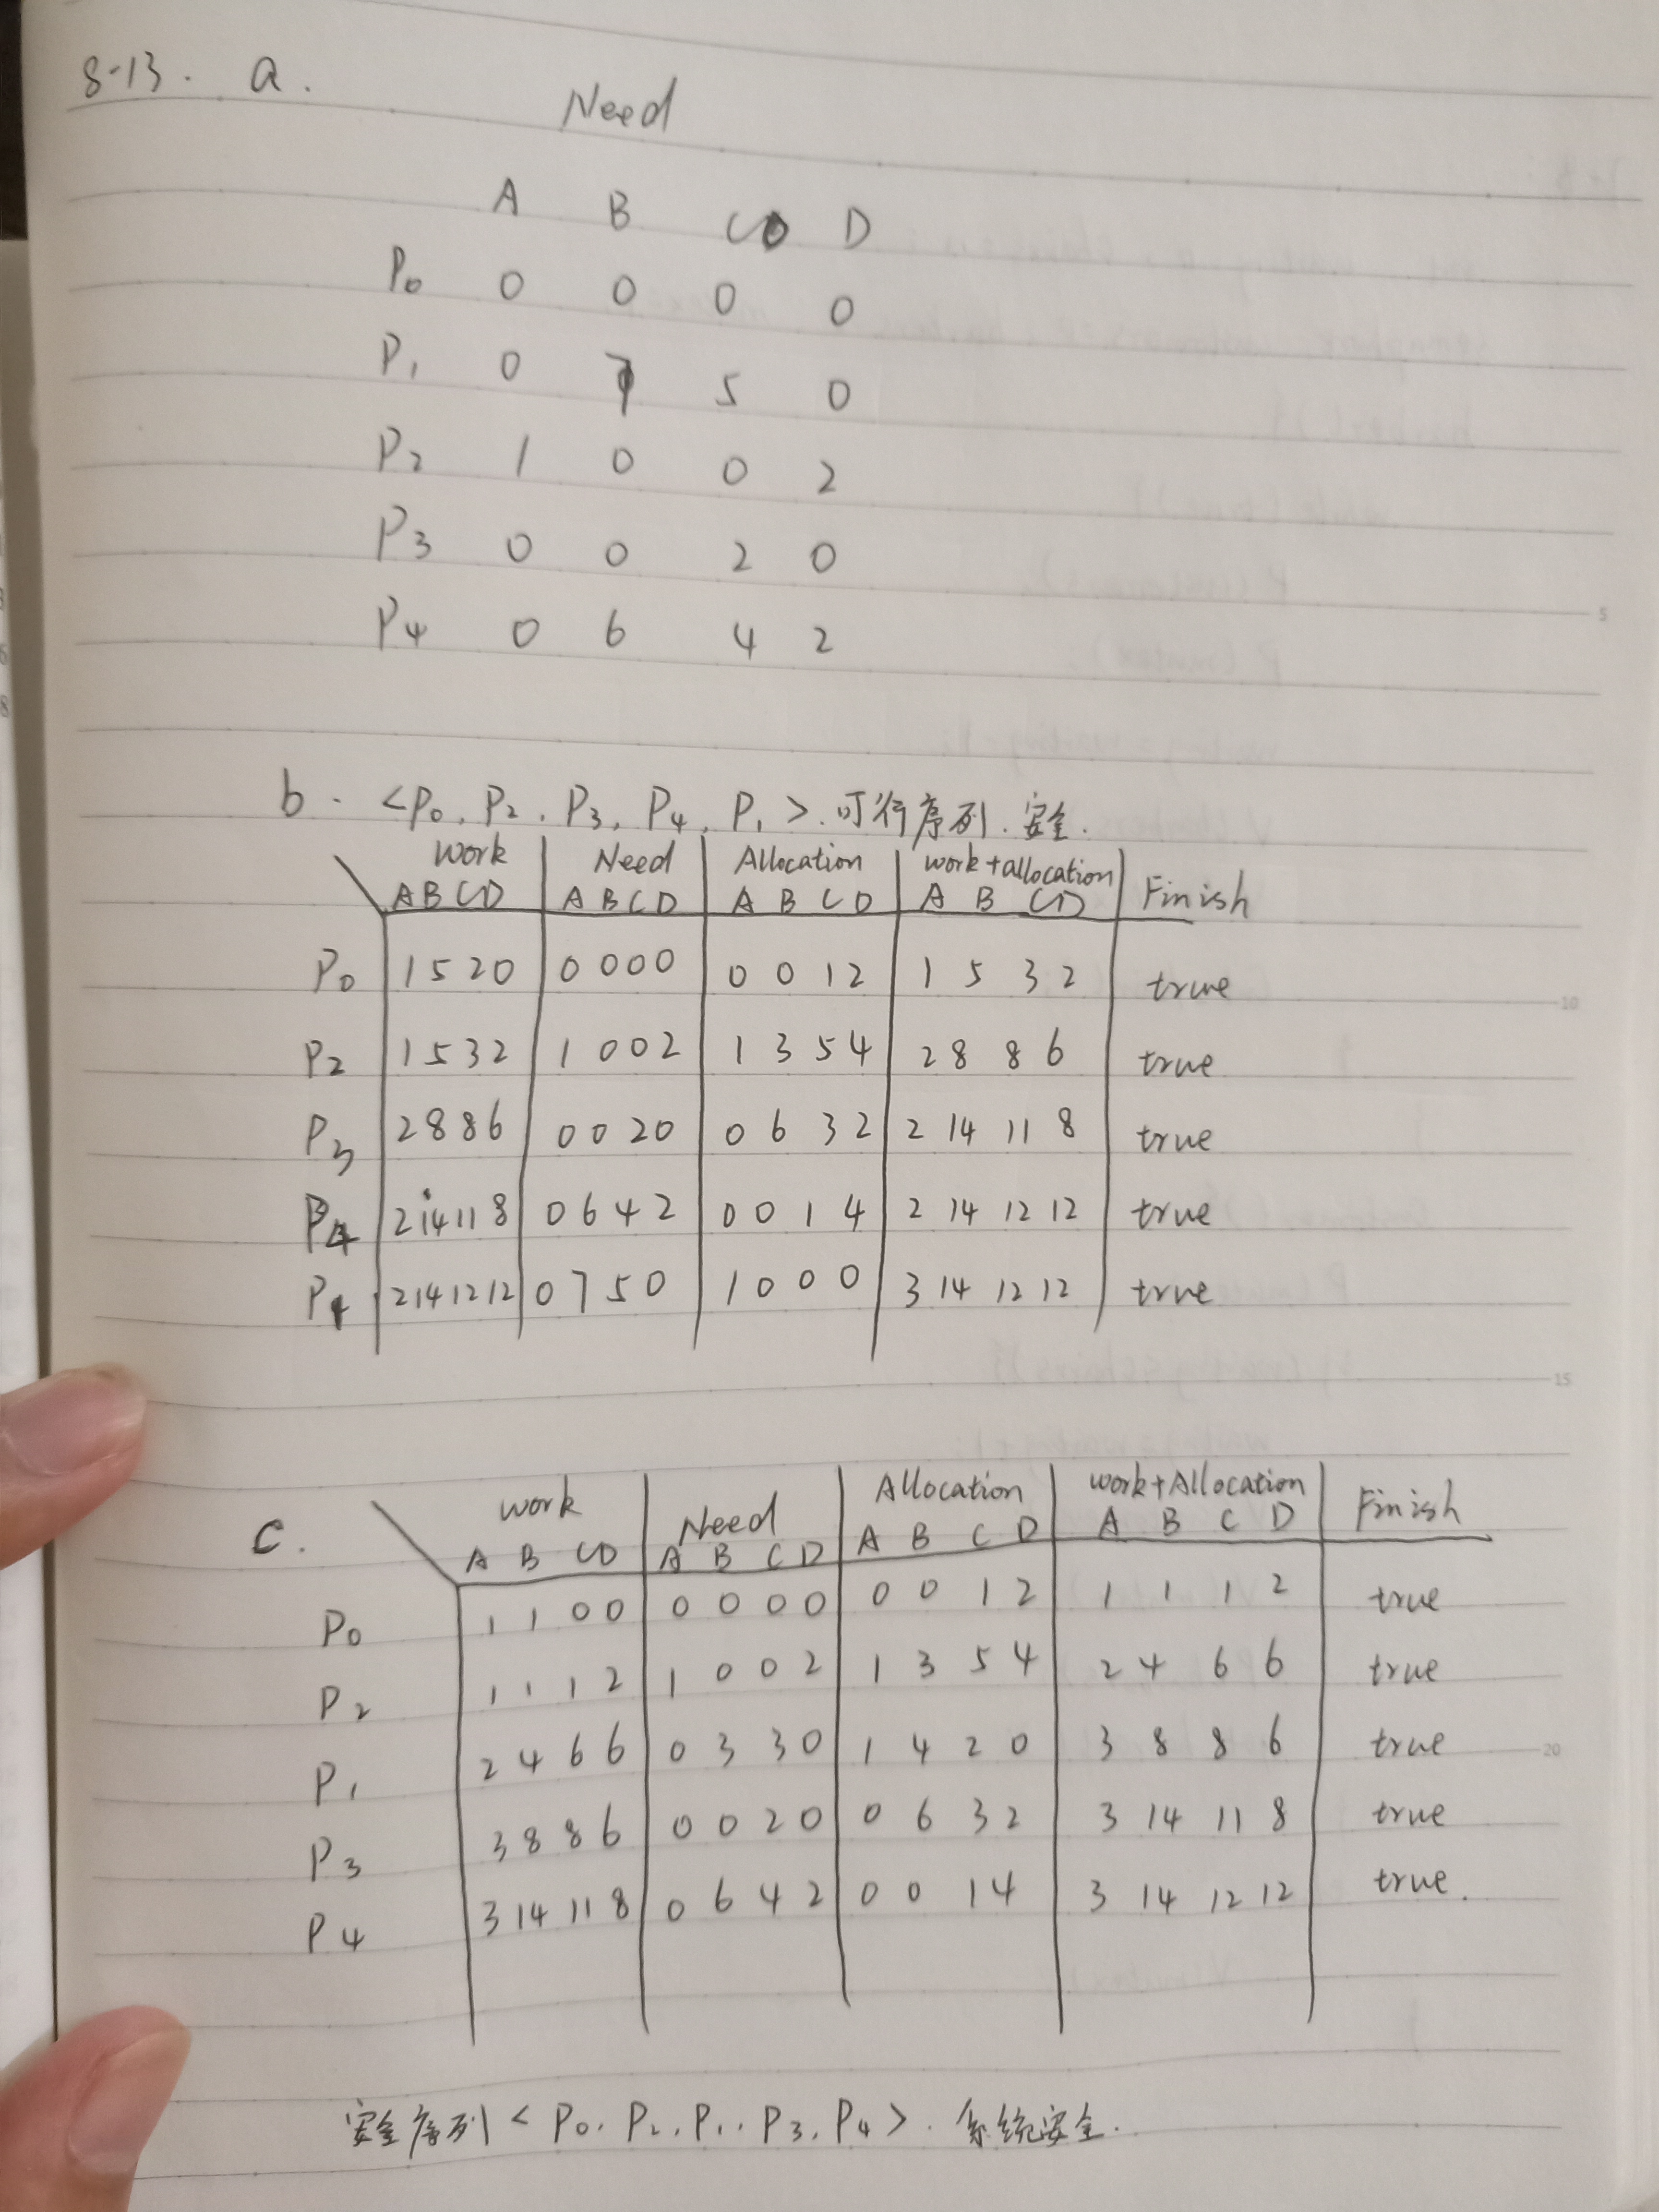 8-13. a.
Need
A B C D
P0 0 0 0 0
P1 0 7 5 0
P2 1 0 0 2
P3 0 0 2 0
P4 0 6 4 2
b. <P0, P2, P3, P4, P1>. 可行序列. 安全.
Work Need Allocation work+allocation Finish
A B C D A B C D A B C D A B C D
P0 1 5 2 0 0 0 0 0 0 0 1 2 1 5 3 2 true
P2 1 5 3 2 1 0 0 2 1 3 5 4 2 8 8 6 true
P3 2 8 8 6 0 0 2 0 0 6 3 2 2 14 11 8 true
P4 2 14 11 8 0 6 4 2 0 0 1 4 2 14 12 12 true
P1 2 14 12 12 0 7 5 0 1 0 0 0 3 14 12 12 true
c. work Need Allocation work+Allocation Finish
A B C D A B C D A B C D A B C D
P0 1 1 0 0 0 0 0 0 0 0 1 2 1 1 1 2 true
P2 1 1 1 2 1 0 0 2 1 3 5 4 2 4 6 6 true
P1 2 4 6 6 0 3 3 0 1 4 2 0 3 8 8 6 true
P3 3 8 8 6 0 0 2 0 0 6 3 2 3 14 11 8 true
P4 3 14 11 8 0 6 4 2 0 0 1 4 3 14 12 12 true.
安全序列 < P0. P2. P1. P3. P4 >. 系统安全.
5
10
15
20